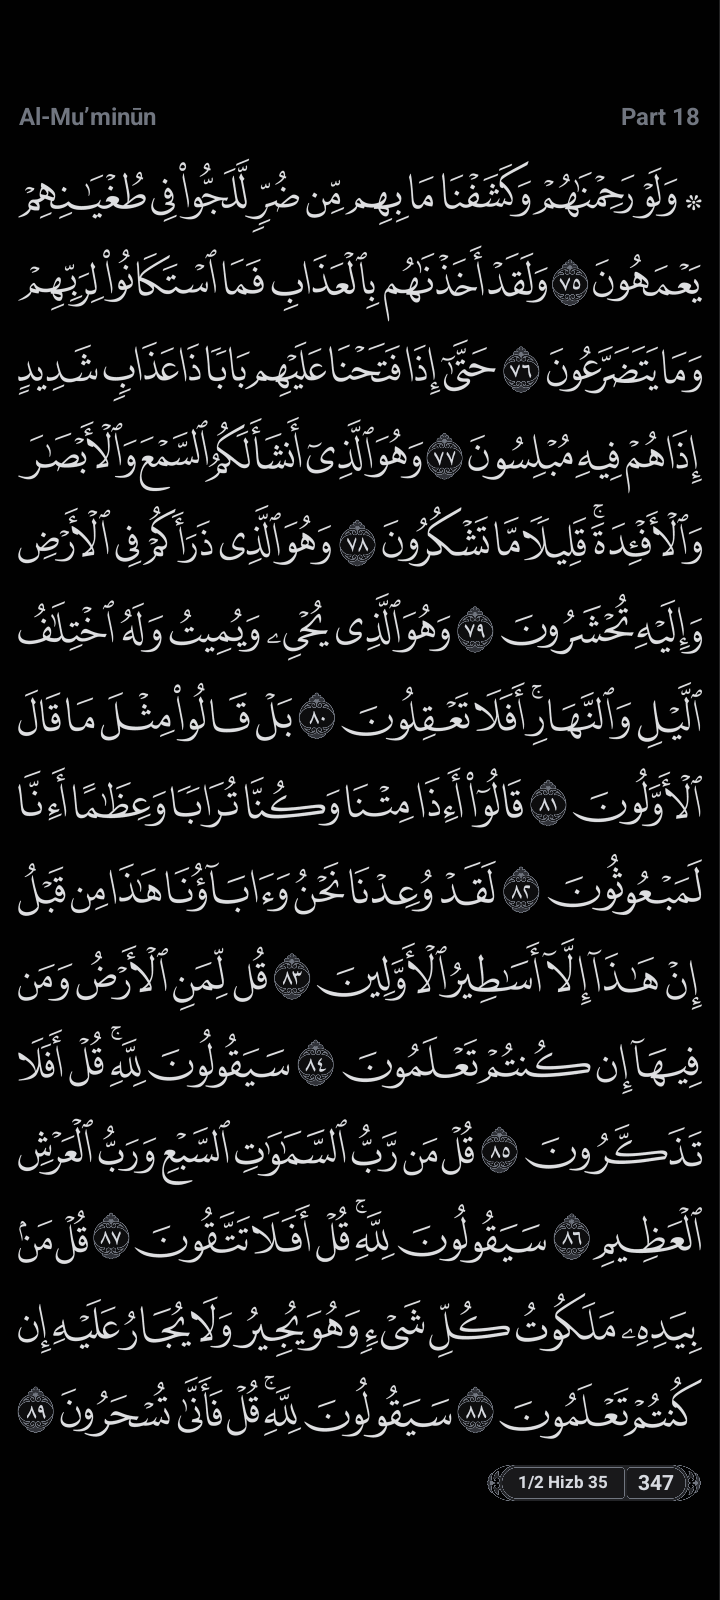 Al-Mu’minūn
Part 18
۞ وَلَوْ رَحِمْنَٰهُمْ وَكَشَفْنَا مَا بِهِم مِّن ضُرٍّ لَّلَجُّوا۟ فِى طُغْيَٰنِهِمْ
يَعْمَهُونَ ٧٥ وَلَقَدْ أَخَذْنَٰهُم بِٱلْعَذَابِ فَمَا ٱسْتَكَانُوا۟ لِرَبِّهِمْ
وَمَا يَتَضَرَّعُونَ ٧٦ حَتَّىٰٓ إِذَا فَتَحْنَا عَلَيْهِم بَابًا ذَا عَذَابٍ شَدِيدٍ
إِذَا هُمْ فِيهِ مُبْلِسُونَ ٧٧ وَهُوَ ٱلَّذِىٓ أَنشَأَ لَكُمُ ٱلسَّمْعَ وَٱلْأَبْصَٰرَ
وَٱلْأَفْـِٔدَةَ ۚ قَلِيلًا مَّا تَشْكُرُونَ ٧٨ وَهُوَ ٱلَّذِى ذَرَأَكُمْ فِى ٱلْأَرْضِ
وَإِلَيْهِ تُحْشَرُونَ ٧٩ وَهُوَ ٱلَّذِى يُحْىِۦ وَيُمِيتُ وَلَهُ ٱخْتِلَٰفُ
ٱلَّيْلِ وَٱلنَّهَارِ ۚ أَفَلَا تَعْقِلُونَ ٨٠ بَلْ قَالُوا۟ مِثْلَ مَا قَالَ
ٱلْأَوَّلُونَ ٨١ قَالُوٓا۟ أَءِذَا مِتْنَا وَكُنَّا تُرَابًا وَعِظَٰمًا أَءِنَّا
لَمَبْعُوثُونَ ٨٢ لَقَدْ وُعِدْنَا نَحْنُ وَءَابَآؤُنَا هَٰذَا مِن قَبْلُ
إِنْ هَٰذَآ إِلَّآ أَسَٰطِيرُ ٱلْأَوَّلِينَ ٨٣ قُل لِّمَنِ ٱلْأَرْضُ وَمَن
فِيهَآ إِن كُنتُمْ تَعْلَمُونَ ٨٤ سَيَقُولُونَ لِلَّهِ ۚ قُلْ أَفَلَا
تَذَكَّرُونَ ٨٥ قُلْ مَن رَّبُّ ٱلسَّمَٰوَٰتِ ٱلسَّبْعِ وَرَبُّ ٱلْعَرْشِ
ٱلْعَظِيمِ ٨٦ سَيَقُولُونَ لِلَّهِ ۚ قُلْ أَفَلَا تَتَّقُونَ ٨٧ قُلْ مَنۢ
بِيَدِهِۦ مَلَكُوتُ كُلِّ شَىْءٍ وَهُوَ يُجِيرُ وَلَا يُجَارُ عَلَيْهِ إِن
كُنتُمْ تَعْلَمُونَ ٨٨ سَيَقُولُونَ لِلَّهِ ۚ قُلْ فَأَنَّىٰ تُسْحَرُونَ ٨٩
1/2 Hizb 35
347